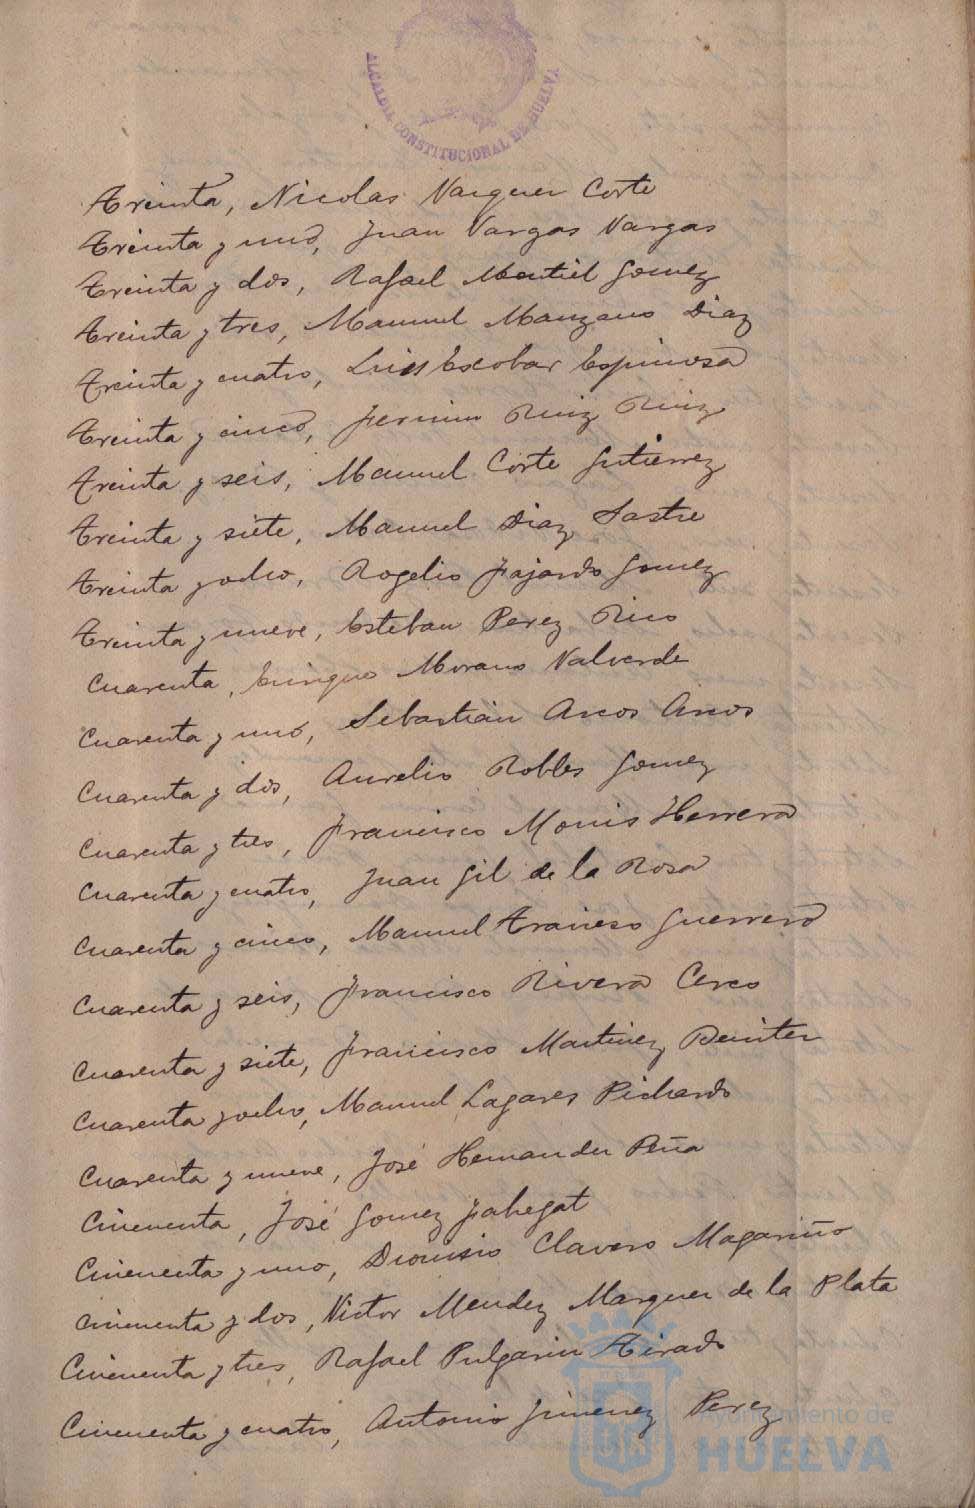 ALCALDIA CONSTITUCIONAL DE HUELVA
Treinta, Nicolas Vazquez Corte
Treinta y uno, Juan Vargas Vargas
Treinta y dos, Rafael Montiel Gomez
Treinta y tres, Manuel Manzano Diaz
Treinta y cuatro, Luis Escobar Espinosa
Treinta y cinco, Fermin Ruiz Ruiz
Treinta y seis, Manuel Corte Gutierrez
Treinta y siete, Manuel Diaz Sastre
Treinta y ocho, Rogelio Fajardo Gomez
Treinta y nueve, Esteban Perez Rico
Cuarenta, Enrique Morano Valverde
Cuarenta y uno, Sebastián Arcos Arcos
Cuarenta y dos, Aurelio Robles Gomez
Cuarenta y tres, Francisco Monis Herrera
Cuarenta y cuatro, Juan Gil de la Rosa
Cuarenta y cinco, Manuel Guerrero
Cuarenta y seis, Francisco Rivera
Cuarenta y siete, Francisco Martinez Benitez
Cuarenta y ocho, Manuel Lagares Pichardo
Cuarenta y nueve, José Hernandez Peña
Cincuenta, José Gomez
Cincuenta y uno, Dionisio Clavero Magariño
Cincuenta y dos, Victor Mendez Marquez de la Plata
Cincuenta y tres, Rafael Pulgarin Tirado
Cincuenta y cuatro, Antonio Jimenez Perez
Ayuntamiento de
HUELVA